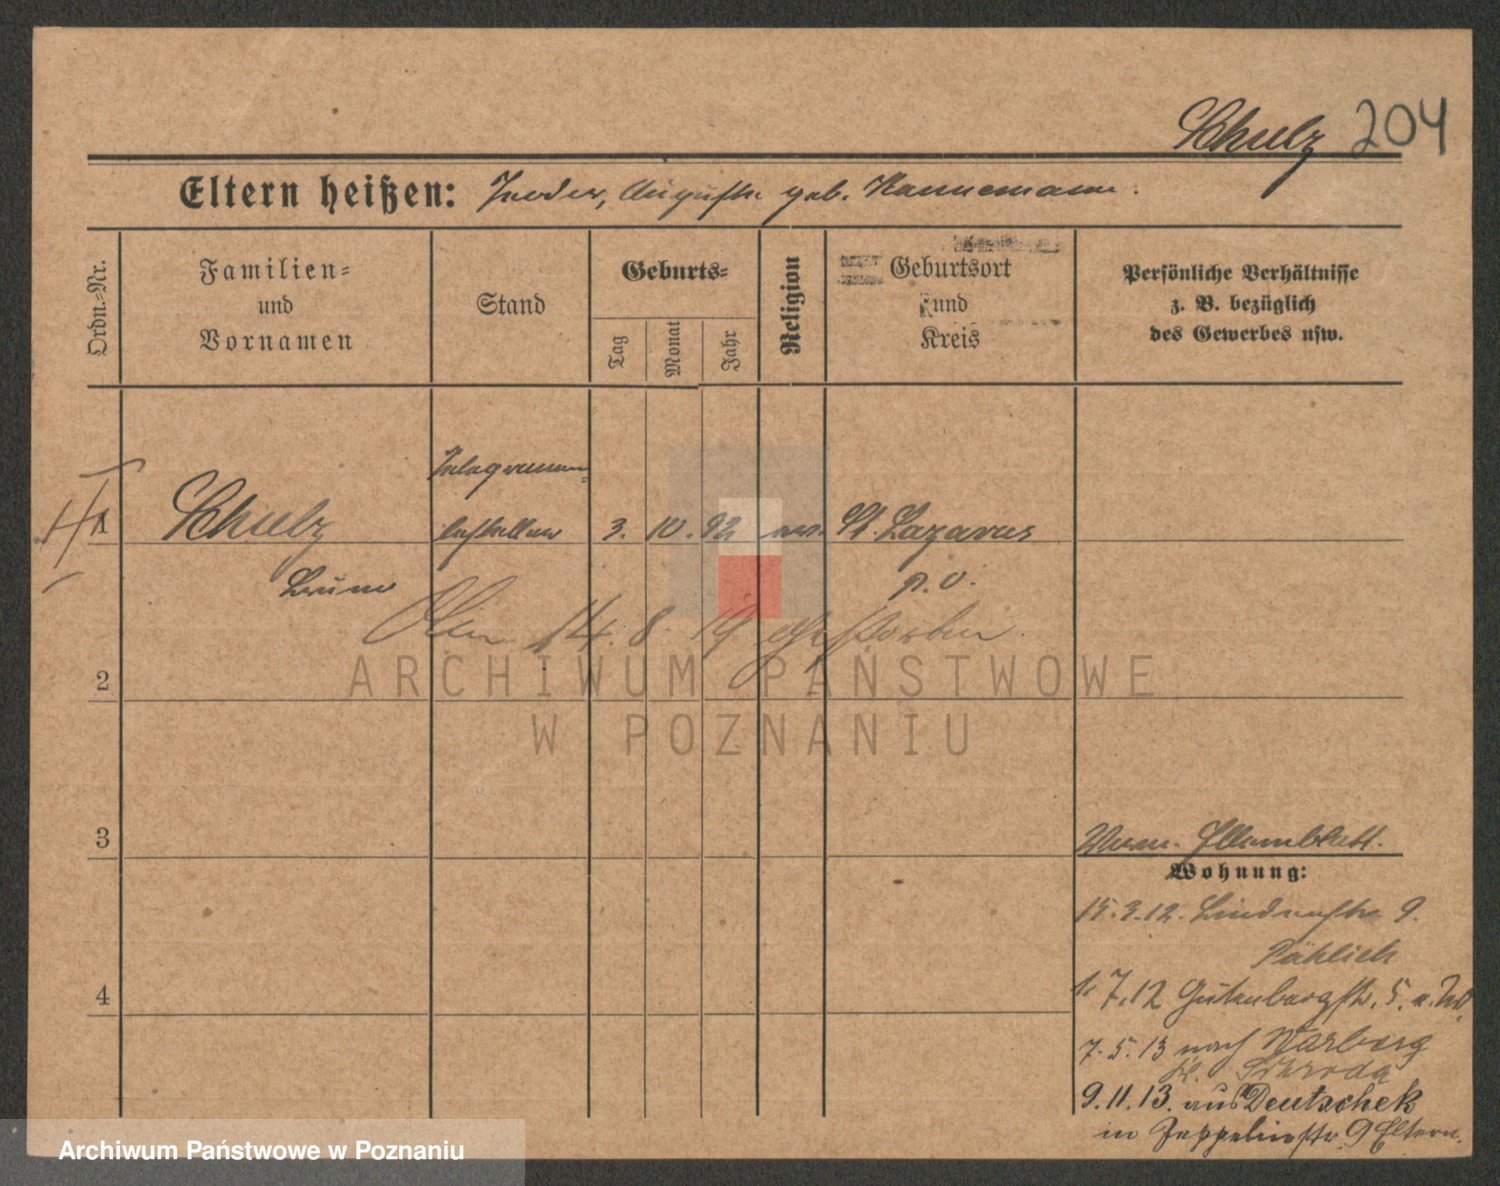 Schulz 204
Eltern heißen: Teodor, Auguste geb. Hannemann.
Ordn.=Nr.
Familien=
und
Vornamen
Stand
Geburts=
Tag
Monat
Jahr
Religion
Geburtsort
und
Kreis
Persönliche Verhältnisse
z. B. bezüglich
des Gewerbes usw.
Telegramm=
1 Schulz besteller 3. 10. 92 ev. St. Lazarus
Bruno p. O.
14. 8. 14 gestorben.
2
ARCHIWUM PAŃSTWOWE
W POZNANIU
3
Wohnung:
15.3.12. Lindenstr 9.
Pählich
4
1. 7.12 Gutenbergstr. 5.
7.5.13 nach Warberg
Kr. Schroda
9.11.13. aus Deutscheck
in Zeppelinstr. 9 Eltern.
Archiwum Państwowe w Poznaniu